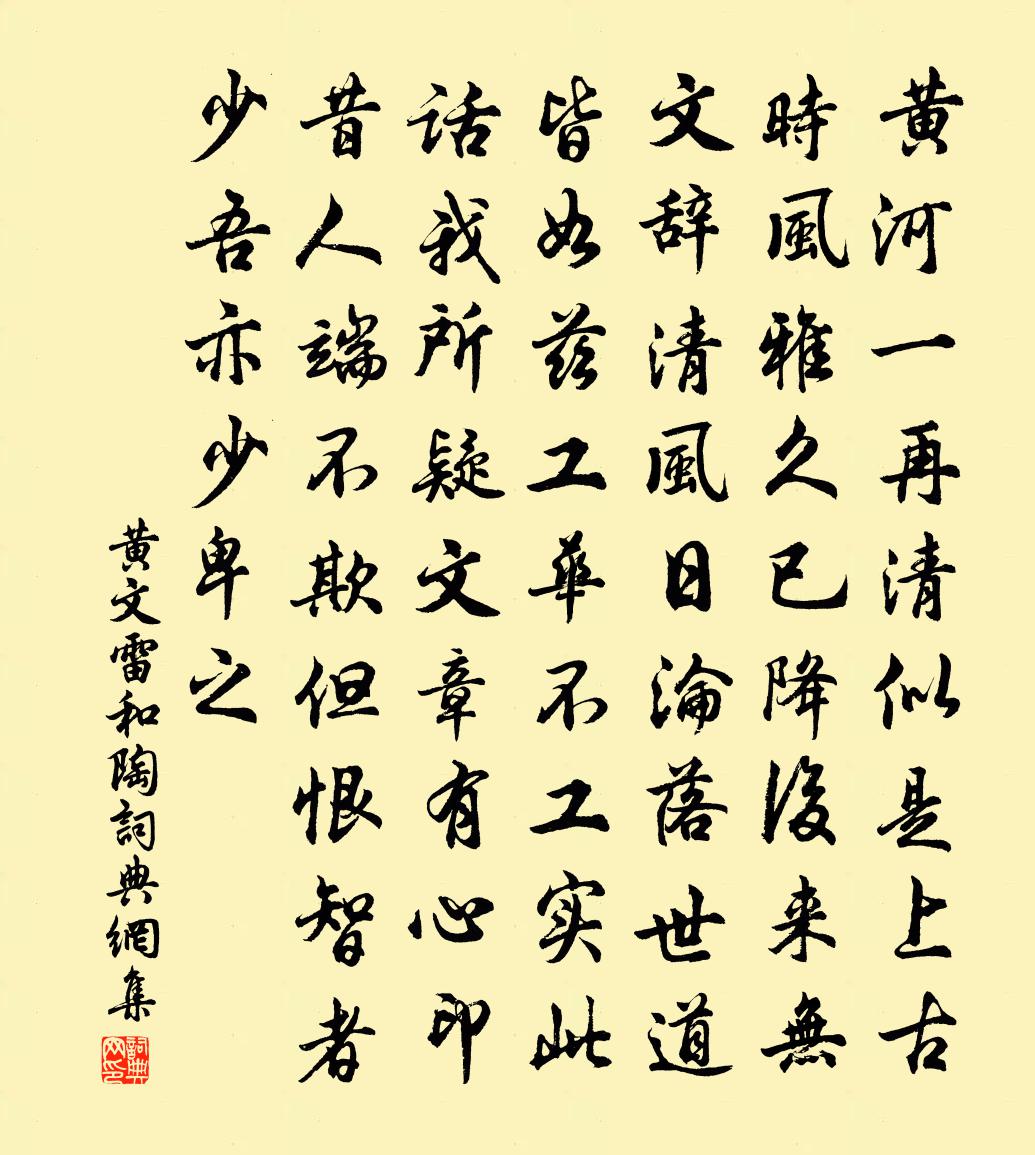 黄河一再清似是上古
時風雅久已降後来無
文辞清風日淪落世道
皆如茲工華不工实此
話我所疑文章有心印
昔人端不欺但恨智者
少吾亦少卑之
黄文雷和陶詞典網集
詞典網印